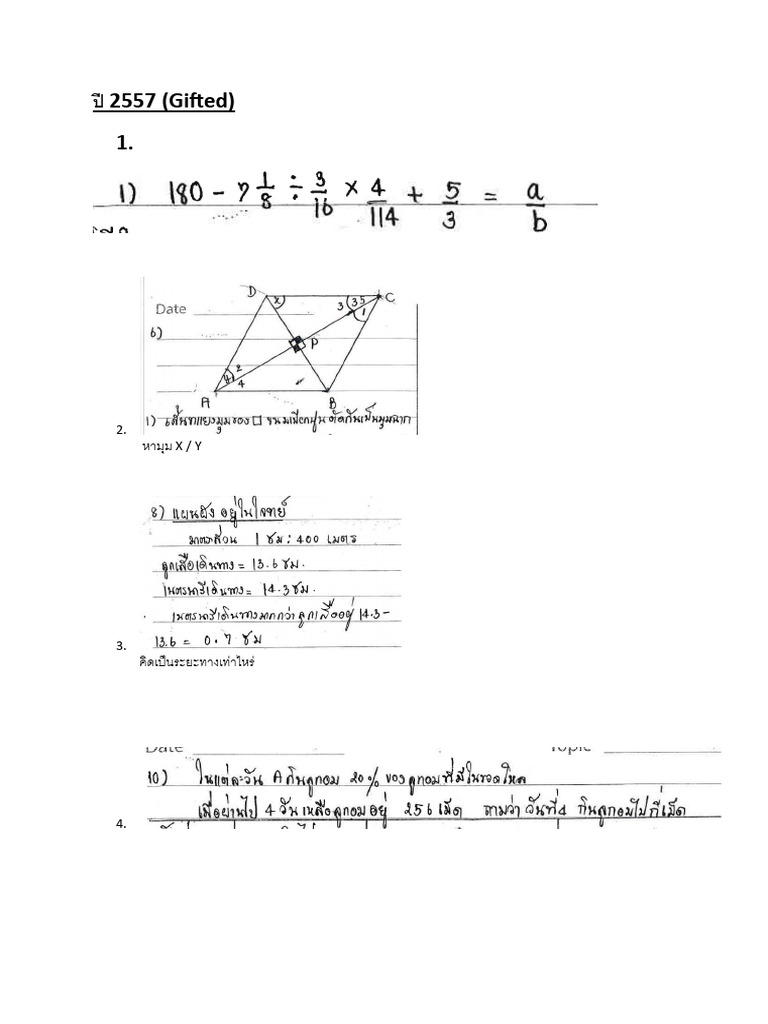 ปี 2557 (Gifted)
1.
1) 180 - 7 1/8 ÷ 3/16 × 4/114 + 5/3 = a/b
D x 3 35 C
Date 1
6)
P
41 2
4
A B
1) เส้นทแยงมุมของ □ ขนมเปียกปูน ตัดกันเป็นมุมฉาก
2.
หามุม X / Y
8) แผนผัง อยู่ในโจทย์
มาตราส่วน 1 ซม : 400 เมตร
ลูกเสือเดินทาง = 13.6 ซม.
เนตรนารีเดินทาง = 14.3 ซม.
เนตรนารีเดินทางมากกว่าลูกเสืออยู่ 14.3 -
13.6 = 0.7 ซม
3.
คิดเป็นระยะทางเท่าไหร่
Date Topic
10) ในแต่ละวัน A กินลูกอม 20% ของลูกอมที่มีในขวดโหล
เมื่อผ่านไป 4 วัน เหลือลูกอมอยู่ 256 เม็ด ถามว่า วันที่ 4 กินลูกอมไปกี่เม็ด
4.